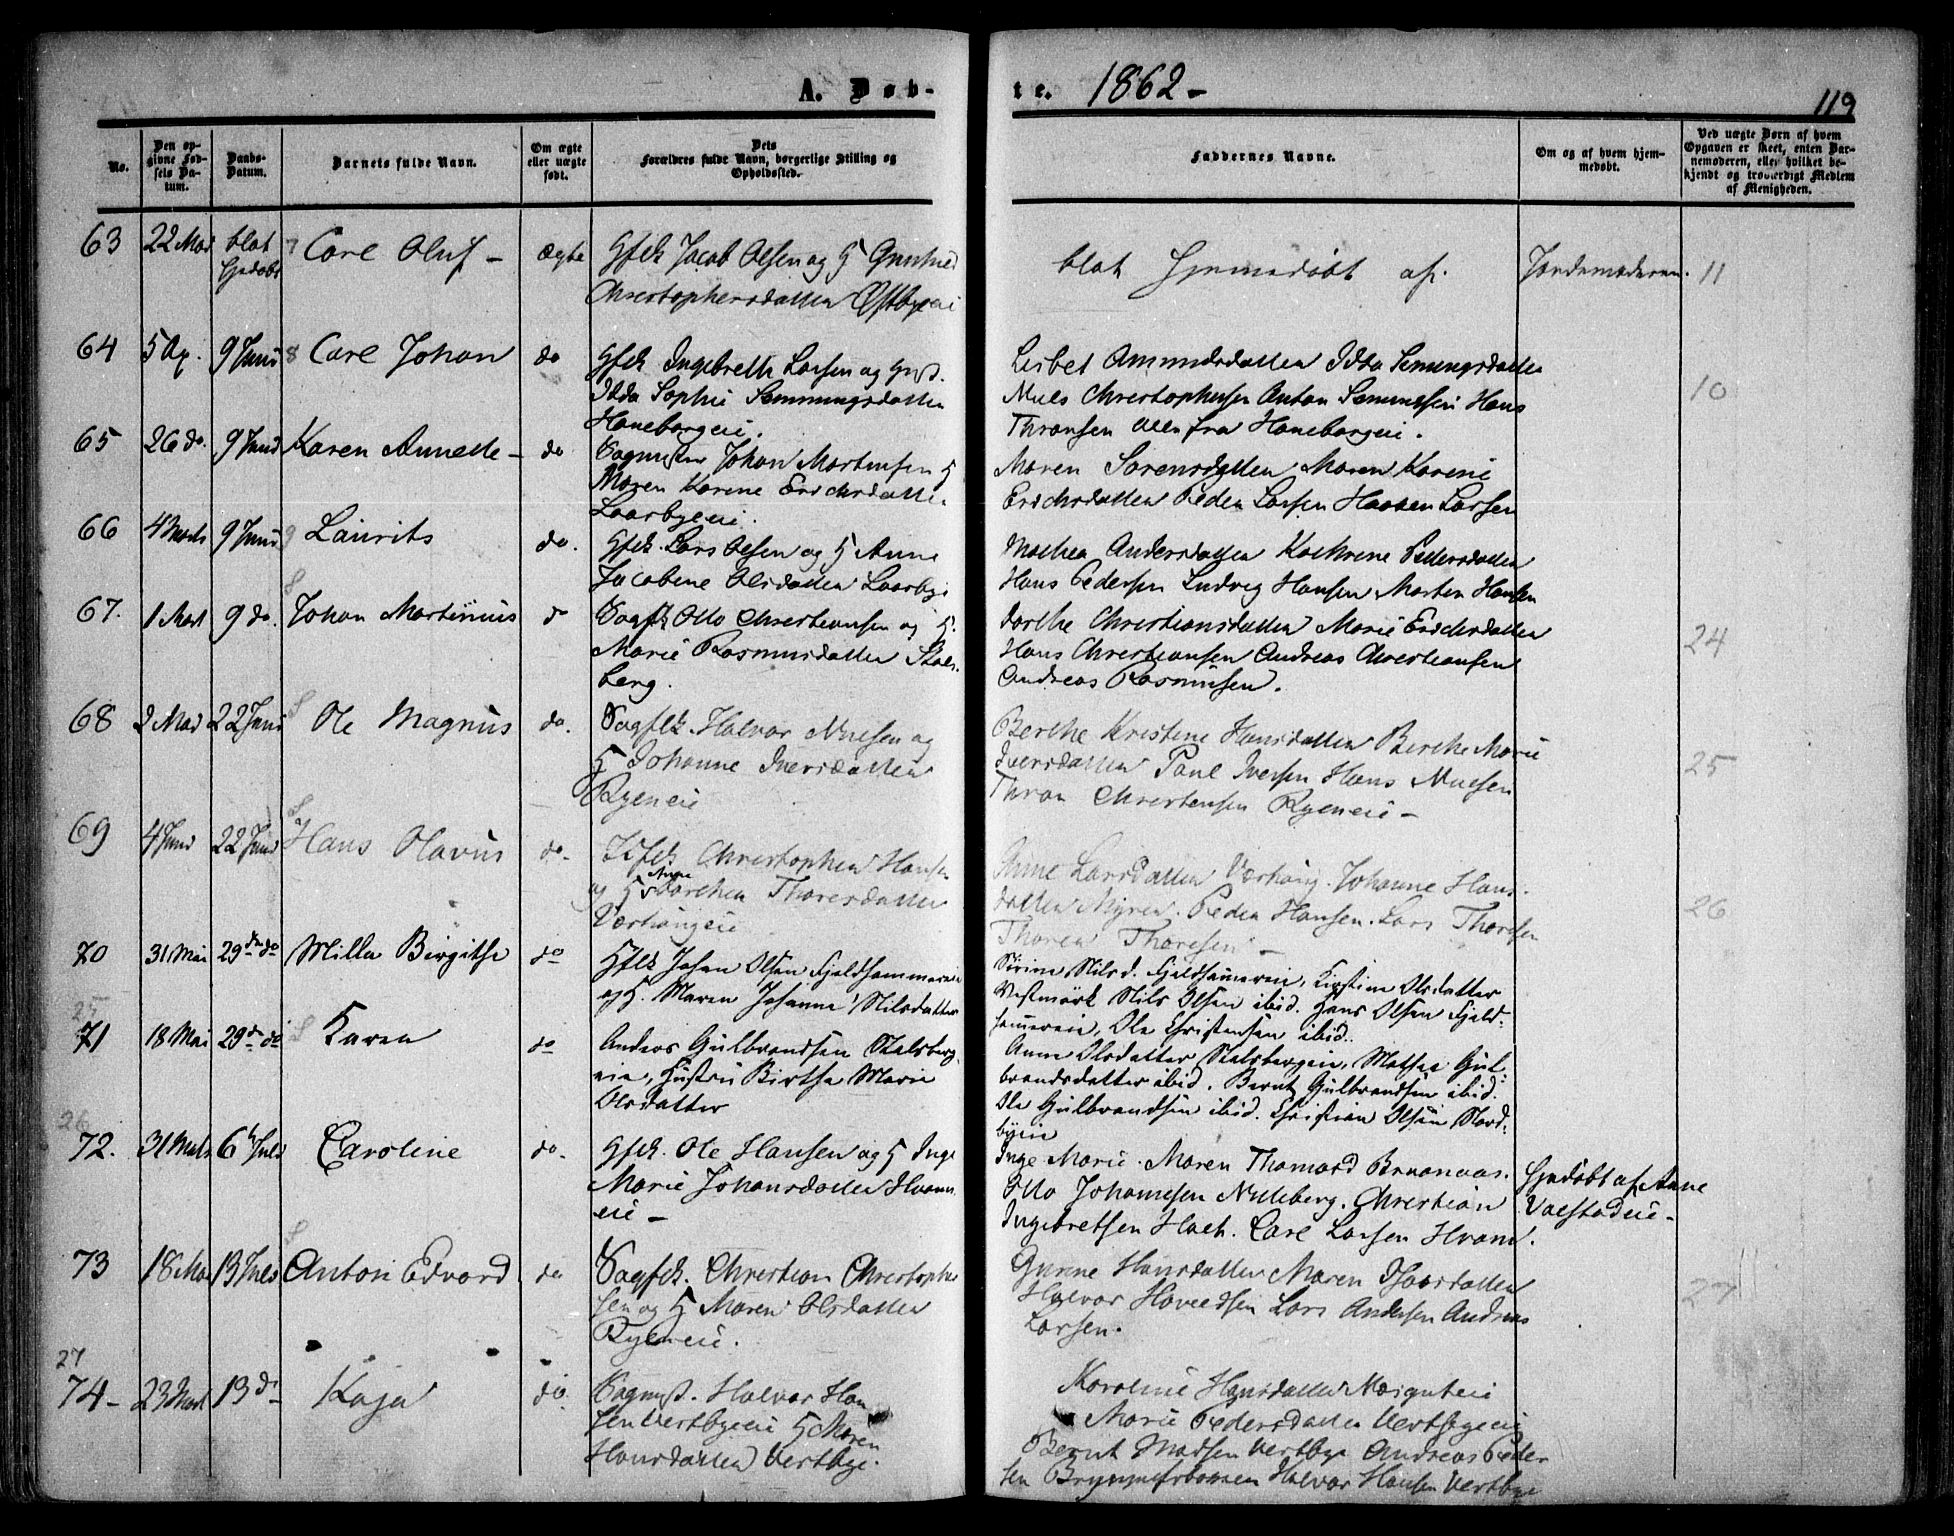 A. Døb-
te. 1862-
119
No.
Den op-
givne Fød-
sels Da-
tum.
Daabs-
Datum.
Barnets fulde Navn.
Om ægte
eller uægte
født.
Dets
Forældres fulde Navn, borgerlige Stilling og
Opholdssted.
Faddernes Navne.
Om og af hvem hjem-
medøbt.
Ved uægte Børn af hvem
Opgaven er skeet, enten Bar-
nemoderen, eller hvilket be-
kjendt og troværdigt Medlem
af Menigheden.
63 22 Mai blot 7 Carl Oluf - ægte Gfsk Jacob Olsen og H Gunhild
hjdøbt Christophersdatter Østbyeie
blot hjemmedøbt af. Jordemoderen. 11
64 5 Ap. 9 Juni 8 Carl Johan do Gfsk Ingebreth Larsen og Hust.
Idda Sophie Semmingsdatter
Haneborgeie.
Lisbet Amundsdatter Idda Semingsdatter
Niels Christophersen Anton Hans
Thronsen alle fra Haneborgeie. 10
65 26 do. 9 Juni Karen Annette - do Johan Martinsen H
Maren Karine Erichsdatter
Laarbyeie.
Maren Sørensdatter Maren Karine
Erichsdatter Peder Larsen Hansen Larsen
66 4 Marts 9 Juni 9 Laurits do. Gfsk. Lars Olsen og H Anne
Jacobine Olsdatter Laarbye
Mathea Andersdatter Kathrine Pedersdatter
Hans Pedersen Ludvig Hansen Morten Hansen
67. 1 Mai 9 do. Johan Martinius d Sagfsk Otto Christiansen og H.
Marie Rasmusdatter Stals-
berg.
Dorthe Christiansdatter Marie Erichsdatter
Hans Christiansen Andreas Christiansen
Andreas Rasmusen. 24
68 2 Mai 22 Juni Ole Magnus do. Sagfsk. Halvor Nielsen og
H Johanne Iversdatter
Ryeneie
Berthe Kristine Hansdatter Berthe Marie
Iversdatter Paul Iversen Hans Nielsen
Thron Christensen Ryeneie - 25
69 4 Juni 22 Juni Hans Olavus do- Christopher Hansen
Anne
og H Dorthea Thoresdatter
Værhaugeie
Anne Larsdatter Værhaug. Johanne Hans-
datter Myren. Peder Hansen. Lars Thoresen
Thoren Thoresen - 26
70 31 Mai 29de do Milla Birgitte do Gfsk Johan Olsen Fjeldhammereie
og H. Maren Johanne Nilsdatter
Sørine Nilsd. Fjeldhammereie, Kirstine Olsdatter
Vestmork Nils Olsen ibid. Hans Olsen Fjeld-
hammereie, Ole Christensen ibid.
25
71 18 Mai 29de do Karen do Andreas Gulbrandsen Stalsberg-
eie, Hustru Birthe Marie
Olsdatter
Anne Olsdatter Stalsbergeie, Mathea Gul-
brandsdatter ibid. Bernt Gulbrandsen ibid.
Ole Gulbrandsen ibid. Christian Olsen Nord-
byeie
26
72. 31 Marts 6 Juli Caroline do- Gfsk. Ole Hansen og H Inge
Marie Johansdatter Hvam-
eie -
Inge Marie. Maren Thomasd Bruanaas.
Otto Johannesen Nitteberg. Christian
Ingebretsen Holt. Carl Larsen Hvam. Hjdøbt af Anne
Valstadeie -
73 18 Mai 13 Juli Anton Edvard do Sagfsk. Christian Christophe-
sen og H Maren Olsdatter
Ryeneie.
Gurine Hansdatter Maren Isaksdatter
Halvor Haveldsen Lars Andersen Andreas
Larsen. 27
27
74- 23 Marts 13 do Kaja do. Halvor Han
sen Vestbyeie H Maren
Hansdatter Vestbye.
Karoline Hansdatter
Marie Pedersdatter Vestbyeie
Bernt Madsen Vestbye Andreas Peder
sen Halvor Hansen Vestbye